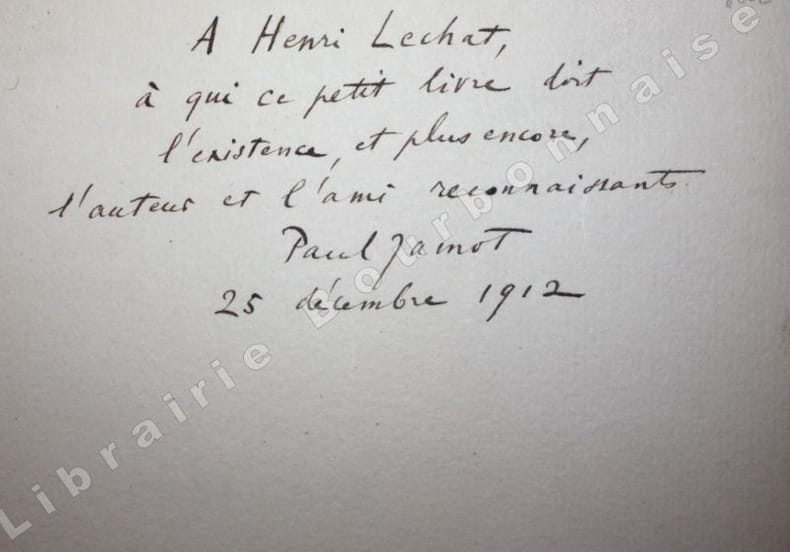 A Henri Lechat,
à qui ce petit livre doit
l'existence, et plus encore,
l'auteur et l'ami reconnaissants.
Paul Jamot
25 décembre 1912
Librairie Bourbonnaise